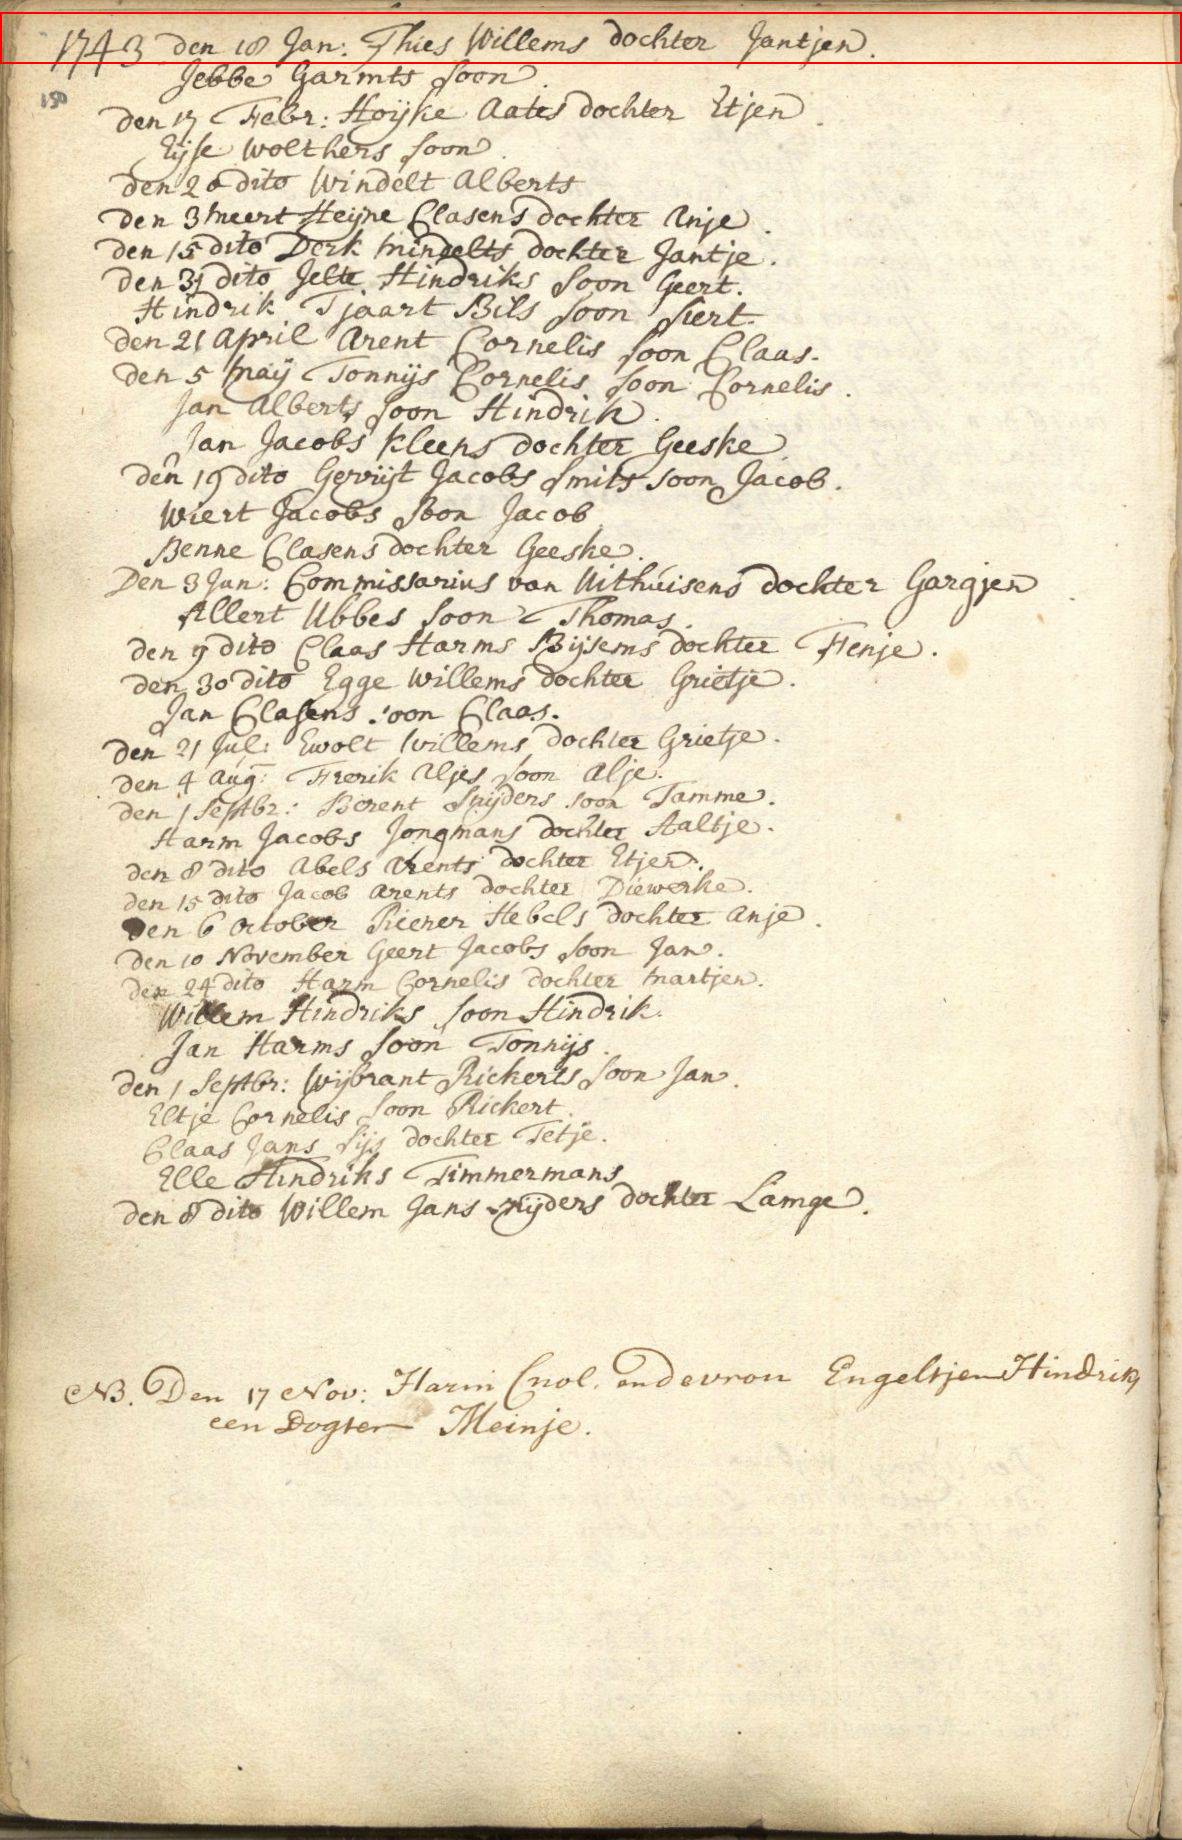 1743 den 18 Jan: Thies Willems dochter Jantjen.
Jebbe Garmts soon.
150
den 17 Febr: Hoijke Aates dochter Etjen.
Eijse Wolthers soon.
den 20 dito Windelt Alberts
den 3 meert Heijne Clasens dochter Anje.
den 15 dito Derk mindelts dochter Jantje.
den 31 dito Jelte Hindriks soon Geert.
Hindrik Tjaart Bils soon Siert.
den 21 April Arent Cornelis soon Claas.
den 5 maij Tonnijs Cornelis soon Cornelis.
Jan Alberts soon Hindrik.
Jan Jacobs Kleens dochter Geeske
den 19 dito Gerrijt Jacobs smits soon Jacob.
Wiert Jacobs Soon Jacob
Benne Clasens dochter Geeske.
Den 3 Jun: Commissarius van Uithuisens dochter Gargjen.
Allert Ubbes soon Thomas.
den 9 dito Claas Harms Bijsems dochter Fenje.
den 30 dito Egge Willems dochter Grietje.
Jan Clasens soon Claas.
den 21 Jul: Ewolt Willems dochter Grietje.
den 4 Aug: Frerik Aljes soon Alje.
den 1 Septbr: Berent Snijders soon Tamme.
Harm Jacobs Jongmans dochter Aaltje.
den 8 dito Abels Arents dochter Etjen.
den 15 dito Jacob Arents dochter Diewerke.
den 6 October Reener Hebels dochter Anje.
den 10 November Geert Jacobs soon Jan.
den 24 dito Harm Cornelis dochter martjen.
Willem Hindriks soon Hindrik.
Jan Harms soon Tonnijs.
den 1 Septbr: Wijbrant Rickerts soon Jan.
Eltje Cornelis soon Rickert.
Claas Jans Sijs dochter Tetje.
Elle Hindriks Timmermans
den 8 dito Willem Jans snijders dochter Lamge.
NB. Den 17 Nov: Harm Cnol, en de vrou Engeltjen Hindriks
een Dogter Meinje.